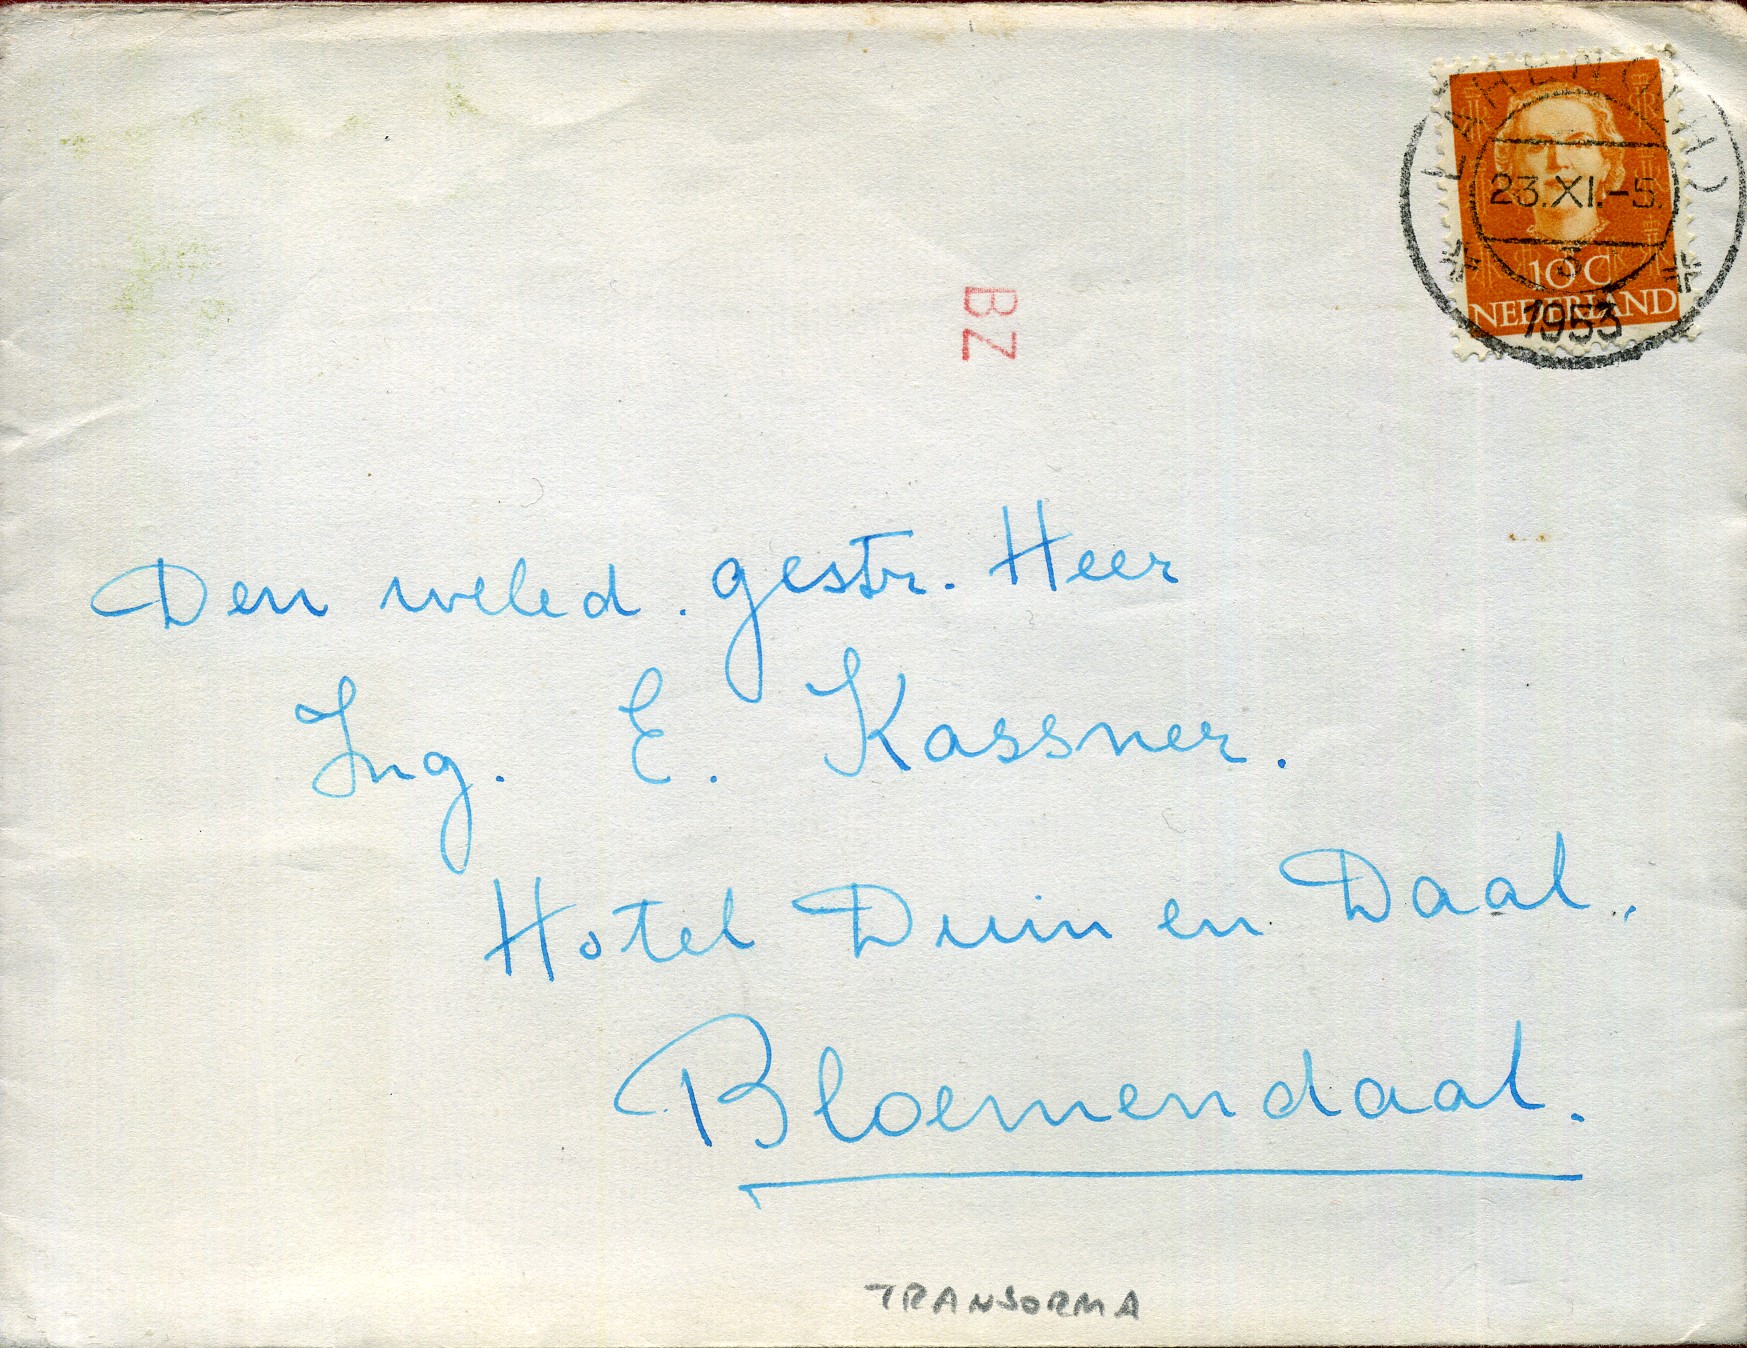 23.XI.-5.
3
10 C
NEDERLAND
1953
BZ
Den weled. gestr. Heer
Ing. E. Kassner.
Hotel Duin en Daal.,
Bloemendaal.
TRANSORMA